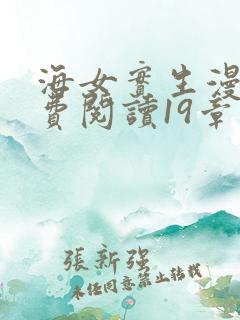 海女實生漫
費閱讀19章
張新强
未经同意禁止转载